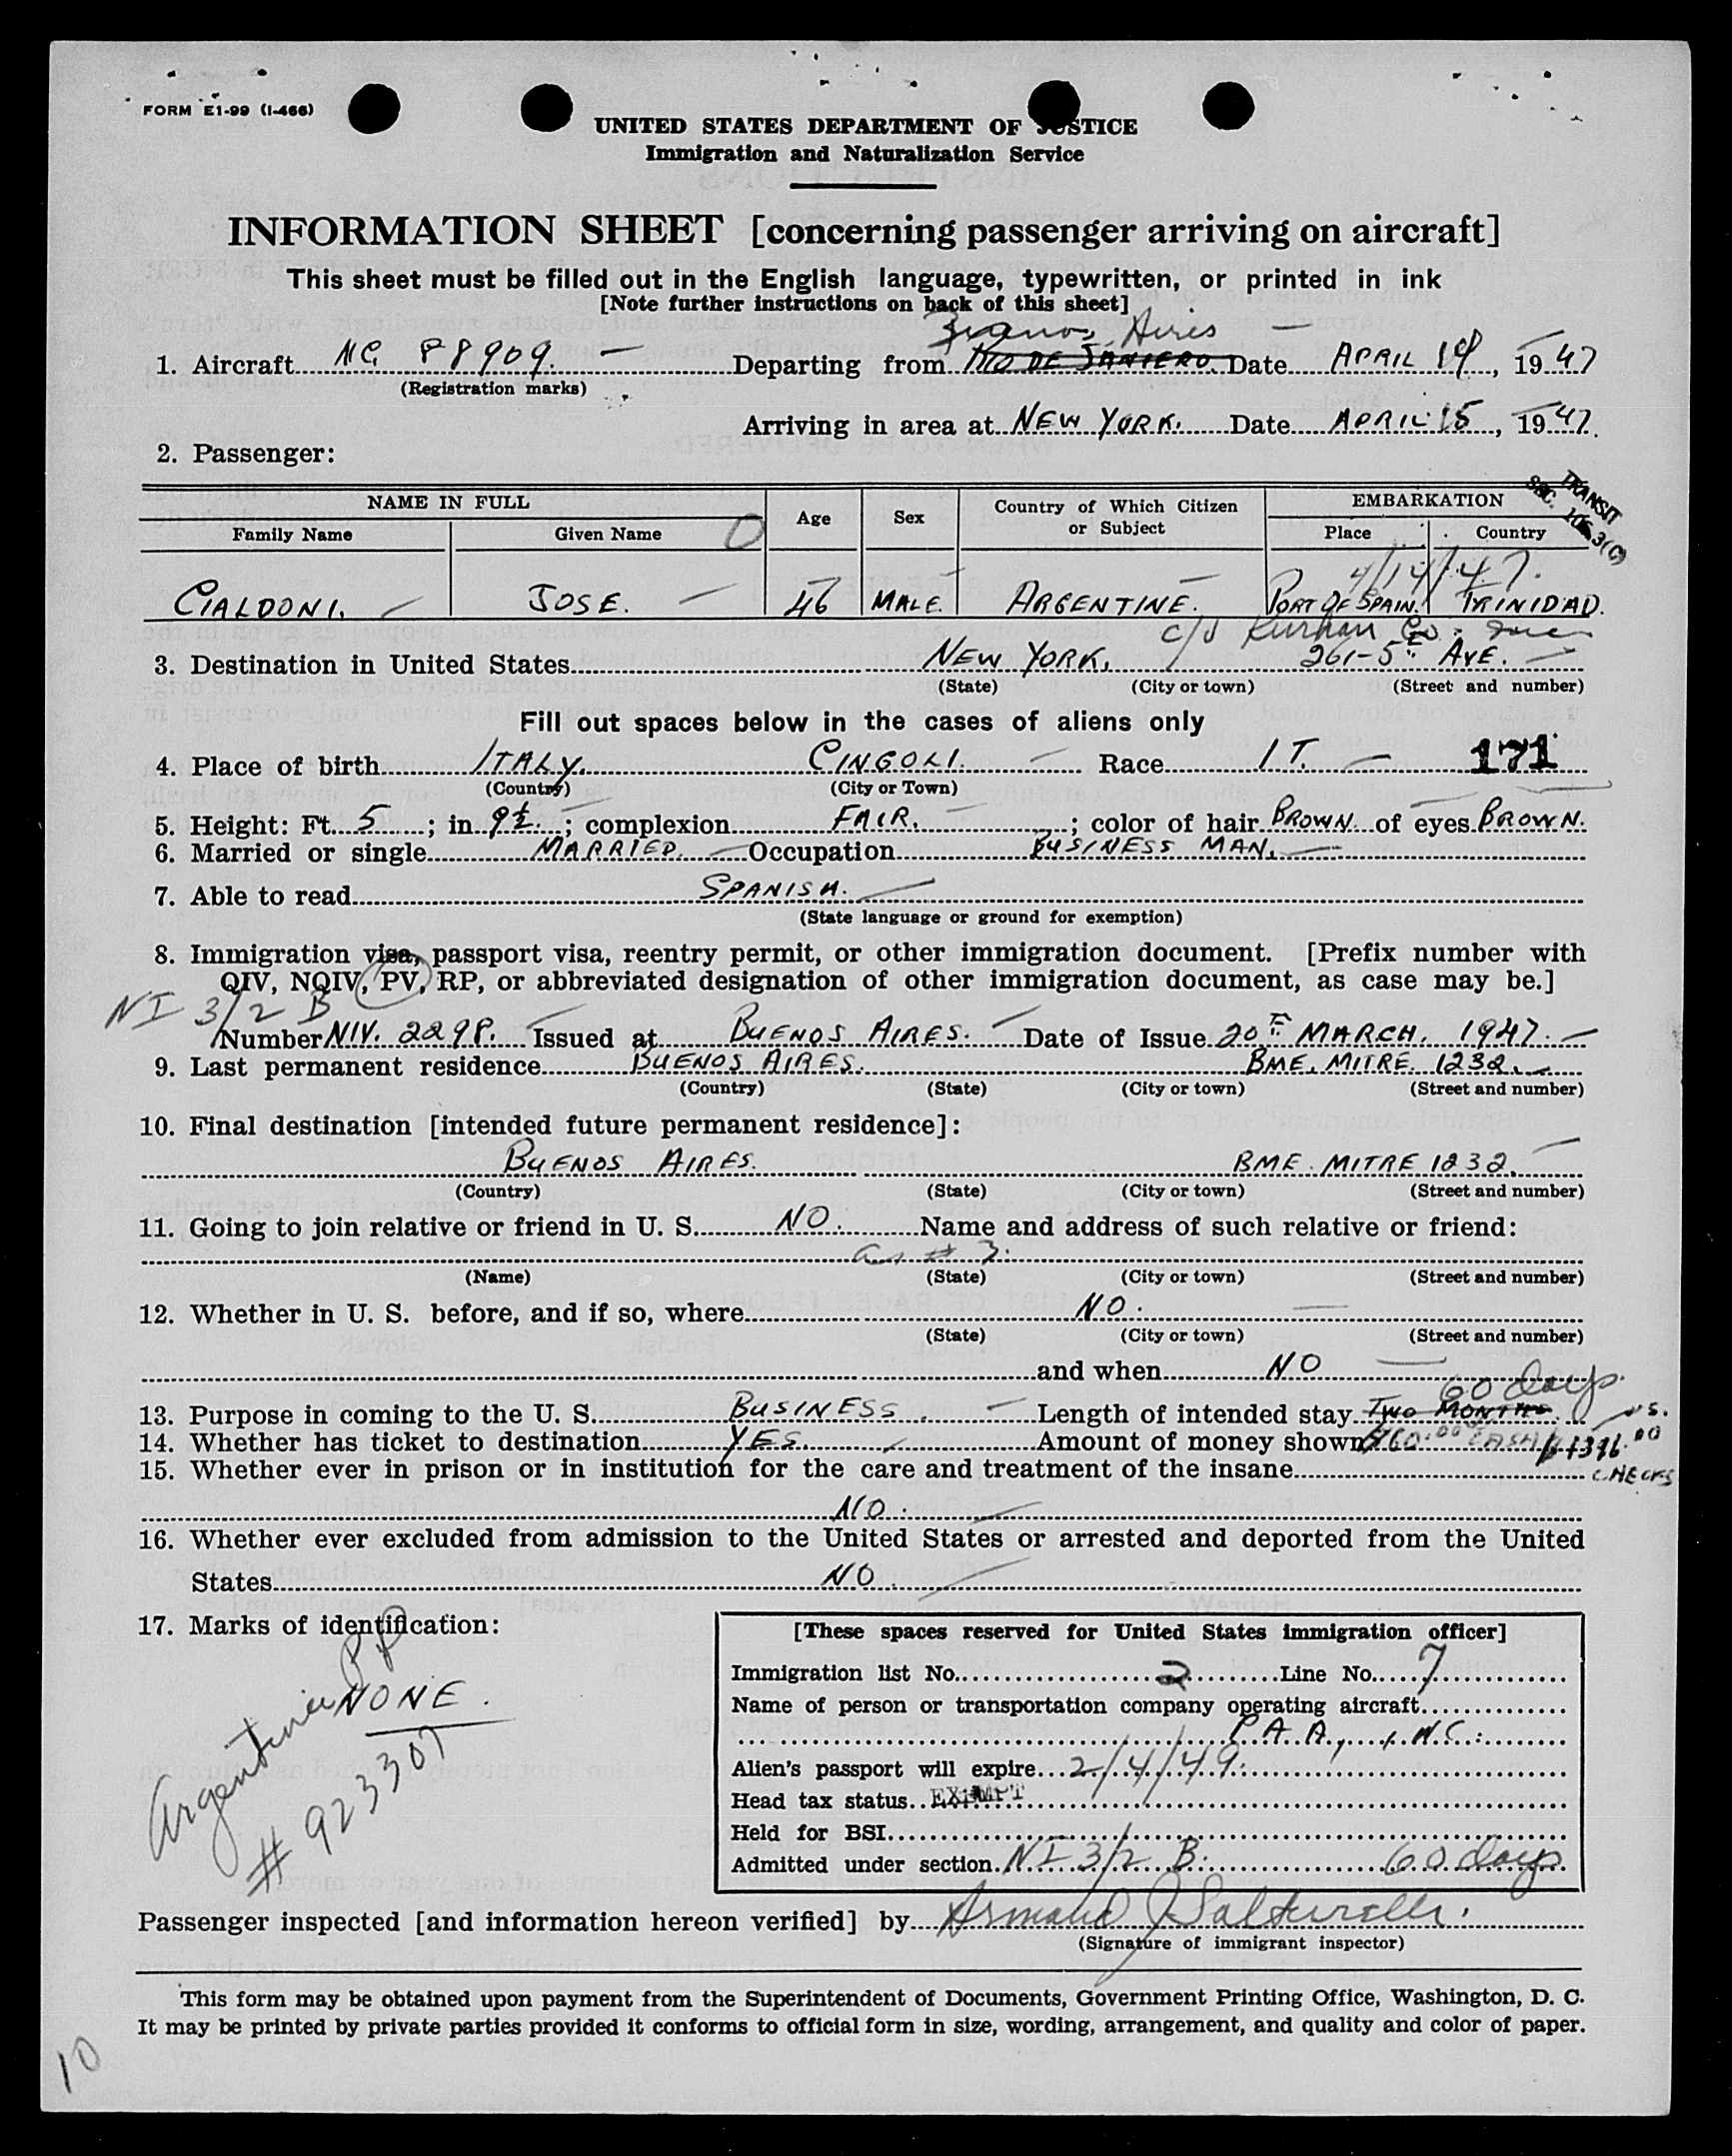 FORM E1-99 (I-466)
UNITED STATES DEPARTMENT OF JUSTICE
Immigration and Naturalization Service
INFORMATION SHEET [concerning passenger arriving on aircraft]
This sheet must be filled out in the English language, typewritten, or printed in ink
[Note further instructions on back of this sheet]
Buenos Aires
1. Aircraft NC 88909. Departing from RIO DE JANIERO. Date APRIL 14, 1947
(Registration marks)
Arriving in area at NEW YORK. Date APRIL 15, 1947.
2. Passenger:
TRANSIT
SEC. 105.3(C)
NAME IN FULL Age Sex Country of Which Citizen or Subject EMBARKATION
Family Name Given Name Place Country
4/14/47.
CIALDONI. JOSE. 46 MALE. ARGENTINE. PORT OF SPAIN. TRINIDAD.
c/o Co. Inc
3. Destination in United States NEW YORK. 261-5th AVE.
(State) (City or town) (Street and number)
Fill out spaces below in the cases of aliens only
4. Place of birth ITALY. CINGOLI. Race IT. 171
(Country) (City or Town)
5. Height: Ft. 5; in. 9½; complexion FAIR.; color of hair BROWN. of eyes BROWN.
6. Married or single MARRIED. Occupation BUSINESS MAN.
7. Able to read SPANISH.
(State language or ground for exemption)
8. Immigration visa, passport visa, reentry permit, or other immigration document. [Prefix number with
QIV, NQIV, PV, RP, or abbreviated designation of other immigration document, as case may be.]
NI 3/2 B
Number NIV. 2298. Issued at BUENOS AIRES. Date of Issue 20th MARCH. 1947.
9. Last permanent residence BUENOS AIRES. BME. MITRE. 1232.
(Country) (State) (City or town) (Street and number)
10. Final destination [intended future permanent residence]:
BUENOS AIRES. BME. MITRE 1232.
(Country) (State) (City or town) (Street and number)
11. Going to join relative or friend in U. S. NO. Name and address of such relative or friend:
as # 3.
(Name) (State) (City or town) (Street and number)
12. Whether in U. S. before, and if so, where NO.
(State) (City or town) (Street and number)
and when NO
60 days.
13. Purpose in coming to the U. S. BUSINESS. Length of intended stay TWO MONTHS.
14. Whether has ticket to destination YES. Amount of money shown CASH
15. Whether ever in prison or in institution for the care and treatment of the insane CHECKS
NO.
16. Whether ever excluded from admission to the United States or arrested and deported from the United
States NO.
17. Marks of identification:
NONE.
Argentine PP
# 923307
[These spaces reserved for United States immigration officer]
Immigration list No. 2 Line No. 7
Name of person or transportation company operating aircraft
P.A.A., INC.
Alien's passport will expire 2/4/49.
Head tax status EXEMPT
Held for BSI
Admitted under section NI 3/2 B. 60 days
Passenger inspected [and information hereon verified] by
(Signature of immigrant inspector)
This form may be obtained upon payment from the Superintendent of Documents, Government Printing Office, Washington, D. C.
It may be printed by private parties provided it conforms to official form in size, wording, arrangement, and quality and color of paper.
10